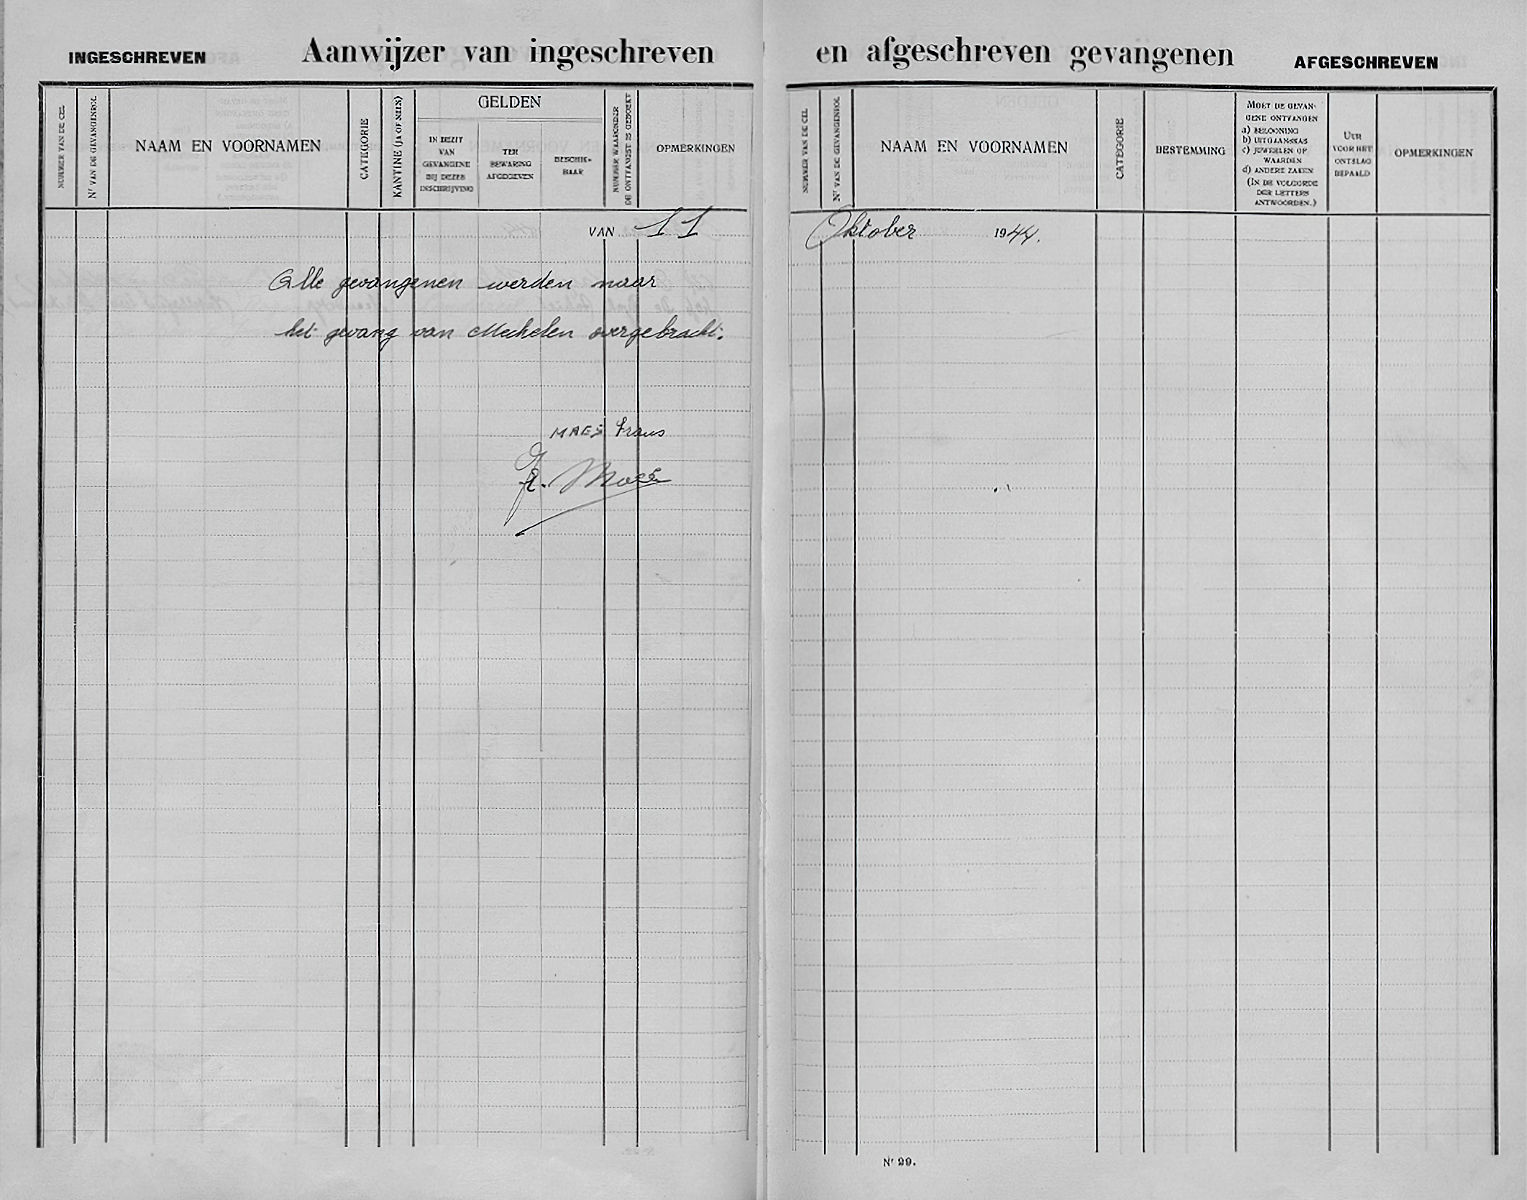 INGESCHREVEN Aanwijzer van ingeschreven en afgeschreven gevangenen AFGESCHREVEN
NUMMER VAN DE CEL
Nr VAN DE GEVANGENROL
NAAM EN VOORNAMEN
CATEGORIE
KANTINE (JA OF NEEN)
GELDEN
IN BEZIT
VAN
GEVANGENE
BIJ DEZER
INSCHRIJVING
TER
BEWARING
AFGEGEVEN
BESCHIK-
BAAR
NUMMER WAARONDER
DE ONTVANGST IS GEBOEKT
OPMERKINGEN
NUMMER VAN DE CEL
Nr VAN DE GEVANGENROL
NAAM EN VOORNAMEN
CATEGORIE
BESTEMMING
MOET DE GEVAN-
GENE ONTVANGEN
a) BELOONING
b) UITGAANSKAS
c) JUWEELEN OF
WAARDEN
d) ANDERE ZAKEN
(IN DE VOLGORDE
DER LETTERS
ANTWOORDEN.)
UUR
VOOR HET
ONTSLAG
BEPAALD
OPMERKINGEN
VAN 11 Oktober 1944.
Alle gevangenen werden naar
het gevang van Mechelen overgebracht.
MAES Frans
Fr. Maes
Nr 29.